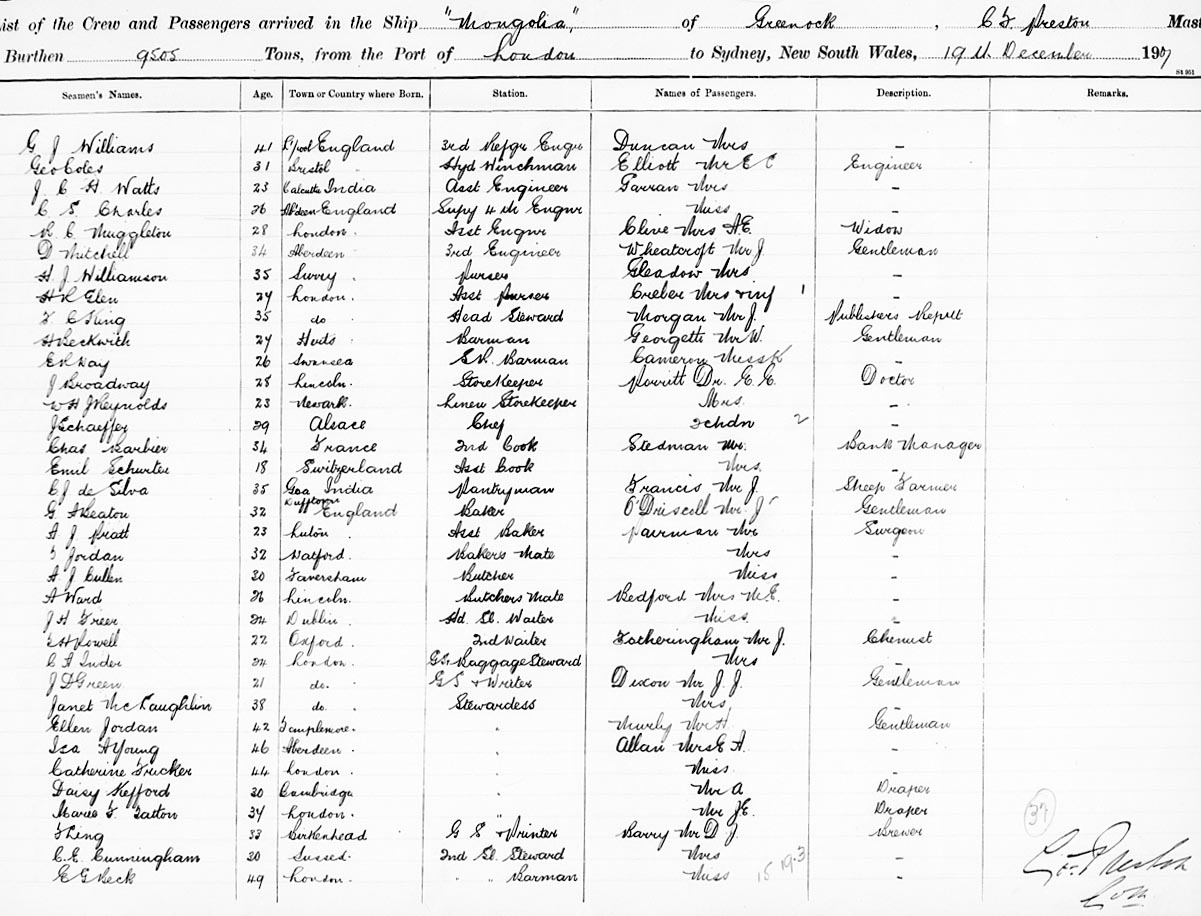 ist of the Crew and Passengers arrived in the Ship "Mongolia," of Greenock, C F Preston Mast
Burthen 9505 Tons, from the Port of London to Sydney, New South Wales, 19th December 1907
Seamen's Names. Age. Town or Country where Born. Station. Names of Passengers. Description. Remarks.
G J Williams 41 L'pool England 3rd Refgr Engr Duncan Mrs -
Geo Coles 31 Bristol " Hyd Winchman Elliott Mr E C Engineer
J. C H Watts 23 Calcutta India Asst Engineer Garran Mrs -
C S. Charles 26 Ab'deen England Supy 4th Engnr Miss -
R C Muggleton 28 London " Asst Engnr Clive Mrs A E. Widow
D Mitchell 34 Aberdeen " 3rd Engineer Wheatcroft Mr J. Gentleman
H. J Williamson 35 Surry " Purser Gleadow Mrs -
H R Glen 24 London " Asst Purser Creber Mrs & inf 1 -
F C King 35 do " Head Steward Morgan Mr J. Publishers Rep
H Beckwith 24 Barman Georgette Mr W. Gentleman
E R Day 26 Swansea S.R. Barman Cameron Miss K -
J Broadway 28 Lincoln. StoreKeeper Porritt Dr. E. E. Doctor
W H J Reynolds 23 Newark. Linen StoreKeeper Mrs. -
J Schaeffer 29 Alsace Chef 2 chdn 2
Chas Barbier 34 France 2nd Cook Stedman Mr. Bank Manager
Emil Schurter 18 Switzerland Asst Cook Mrs. -
C J de Silva 35 Goa India Pantryman Francis Mr J. Sheep Farmer
G A Beaton 32 Dufftown England Baker O'Driscoll Mr. J Gentleman
A J Pratt 23 Luton " Asst Baker Pairman Mr Surgeon
Jordan 32 Watford. " Bakers Mate Mrs -
A. J Cullen 30 Faversham Butcher Miss -
A Ward 26 Lincoln. Butchers Mate Bedford Mrs M.E. -
J H Greer 24 Dublin. " Hd. Sl. Waiter Miss -
Powell 22 Oxford. " 2nd Waiter Fotheringham Mr J. Chemist
C A Inder 24 London. " G.S. Baggage Steward Mrs -
J D Green 21 do. " G S & Writer Dixon Mr J. J. Gentleman
Janet McLaughlin 38 do. " Stewardess Mrs, -
Ellen Jordan 42 Templemore. " Mr H Gentleman
Isa A Young 46 Aberdeen " " Allan Mrs E A. -
Catherine Tricker 44 London " " Miss. -
Daisy Kefford 30 Cambridge " Mr A Draper
Marie F. Tatton 34 London. " " Mr J E. Draper
King 33 Birkenhead G S & Printer Barry Mr D J. Brewer
C. E. Cunningham 30 Sussex. 2nd Sl. Steward Mrs -
E G Beck 49 London. " " Barman Miss -
15 19.3
37
C F Preston
Com